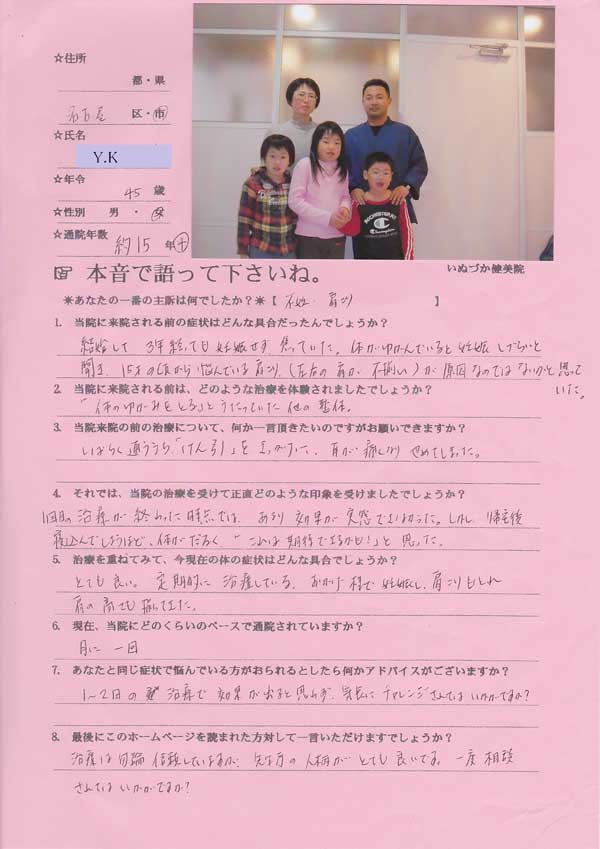 ☆住所
都・県
名古屋 区・市
☆氏名
Y.K
☆年令
45 歳
☆性別 男・女
☆通院年数
約15 年
Champion
いぬづか健美院
☞ 本音で語って下さいね。
＊あなたの一番の主訴は何でしたか？＊【 不妊・肩こり 】
1. 当院に来院される前の症状はどんな具合だったんでしょうか？
結婚して 3年経っても妊娠せず、焦っていた。体がゆがんでいると妊娠しづらいと
聞き、15才の頃から悩んでいる肩こり（左右の肩が不揃い）が原因なのではないかと思って
いた。
2. 当院に来院される前は、どのような治療を体験されましたでしょうか？
「体のゆがみをとる」とうたっていた他の整体。
3. 当院来院の前の治療について、何か一言頂きたいのですがお願いできますか？
しばらく通ううち「けん引」を 肩が痛くなり やめてしまった。
4. それでは、当院の治療を受けて正直どのような印象を受けましたでしょうか？
1回目の治療が終わった時点では、あまり効果が実感できなかった。しかし、帰宅後
寝込んでしまうほど、体がだるく、「これは期待できるかも！」と思った。
5. 治療を重ねてみて、今現在の体の症状はどんな具合でしょうか？
とても良い。定期的に治療している。おかげ様で妊娠し、肩こりもとれ
肩の高さも揃ってきた。
6. 現在、当院にどのくらいのペースで通院されていますか？
月に 一回
7. あなたと同じ症状で悩んでいる方がおられるとしたら何かアドバイスがございますか？
1～2回の 治療で 効果が出ると思わず、気長にチャレンジされてはいかがですか？
8. 最後にこのホームページを読まれた方対して一言いただけますでしょうか？
治療は勿論 信頼していますが、先生方の人柄がとても良いです。一度 相談
されてはいかがですか？